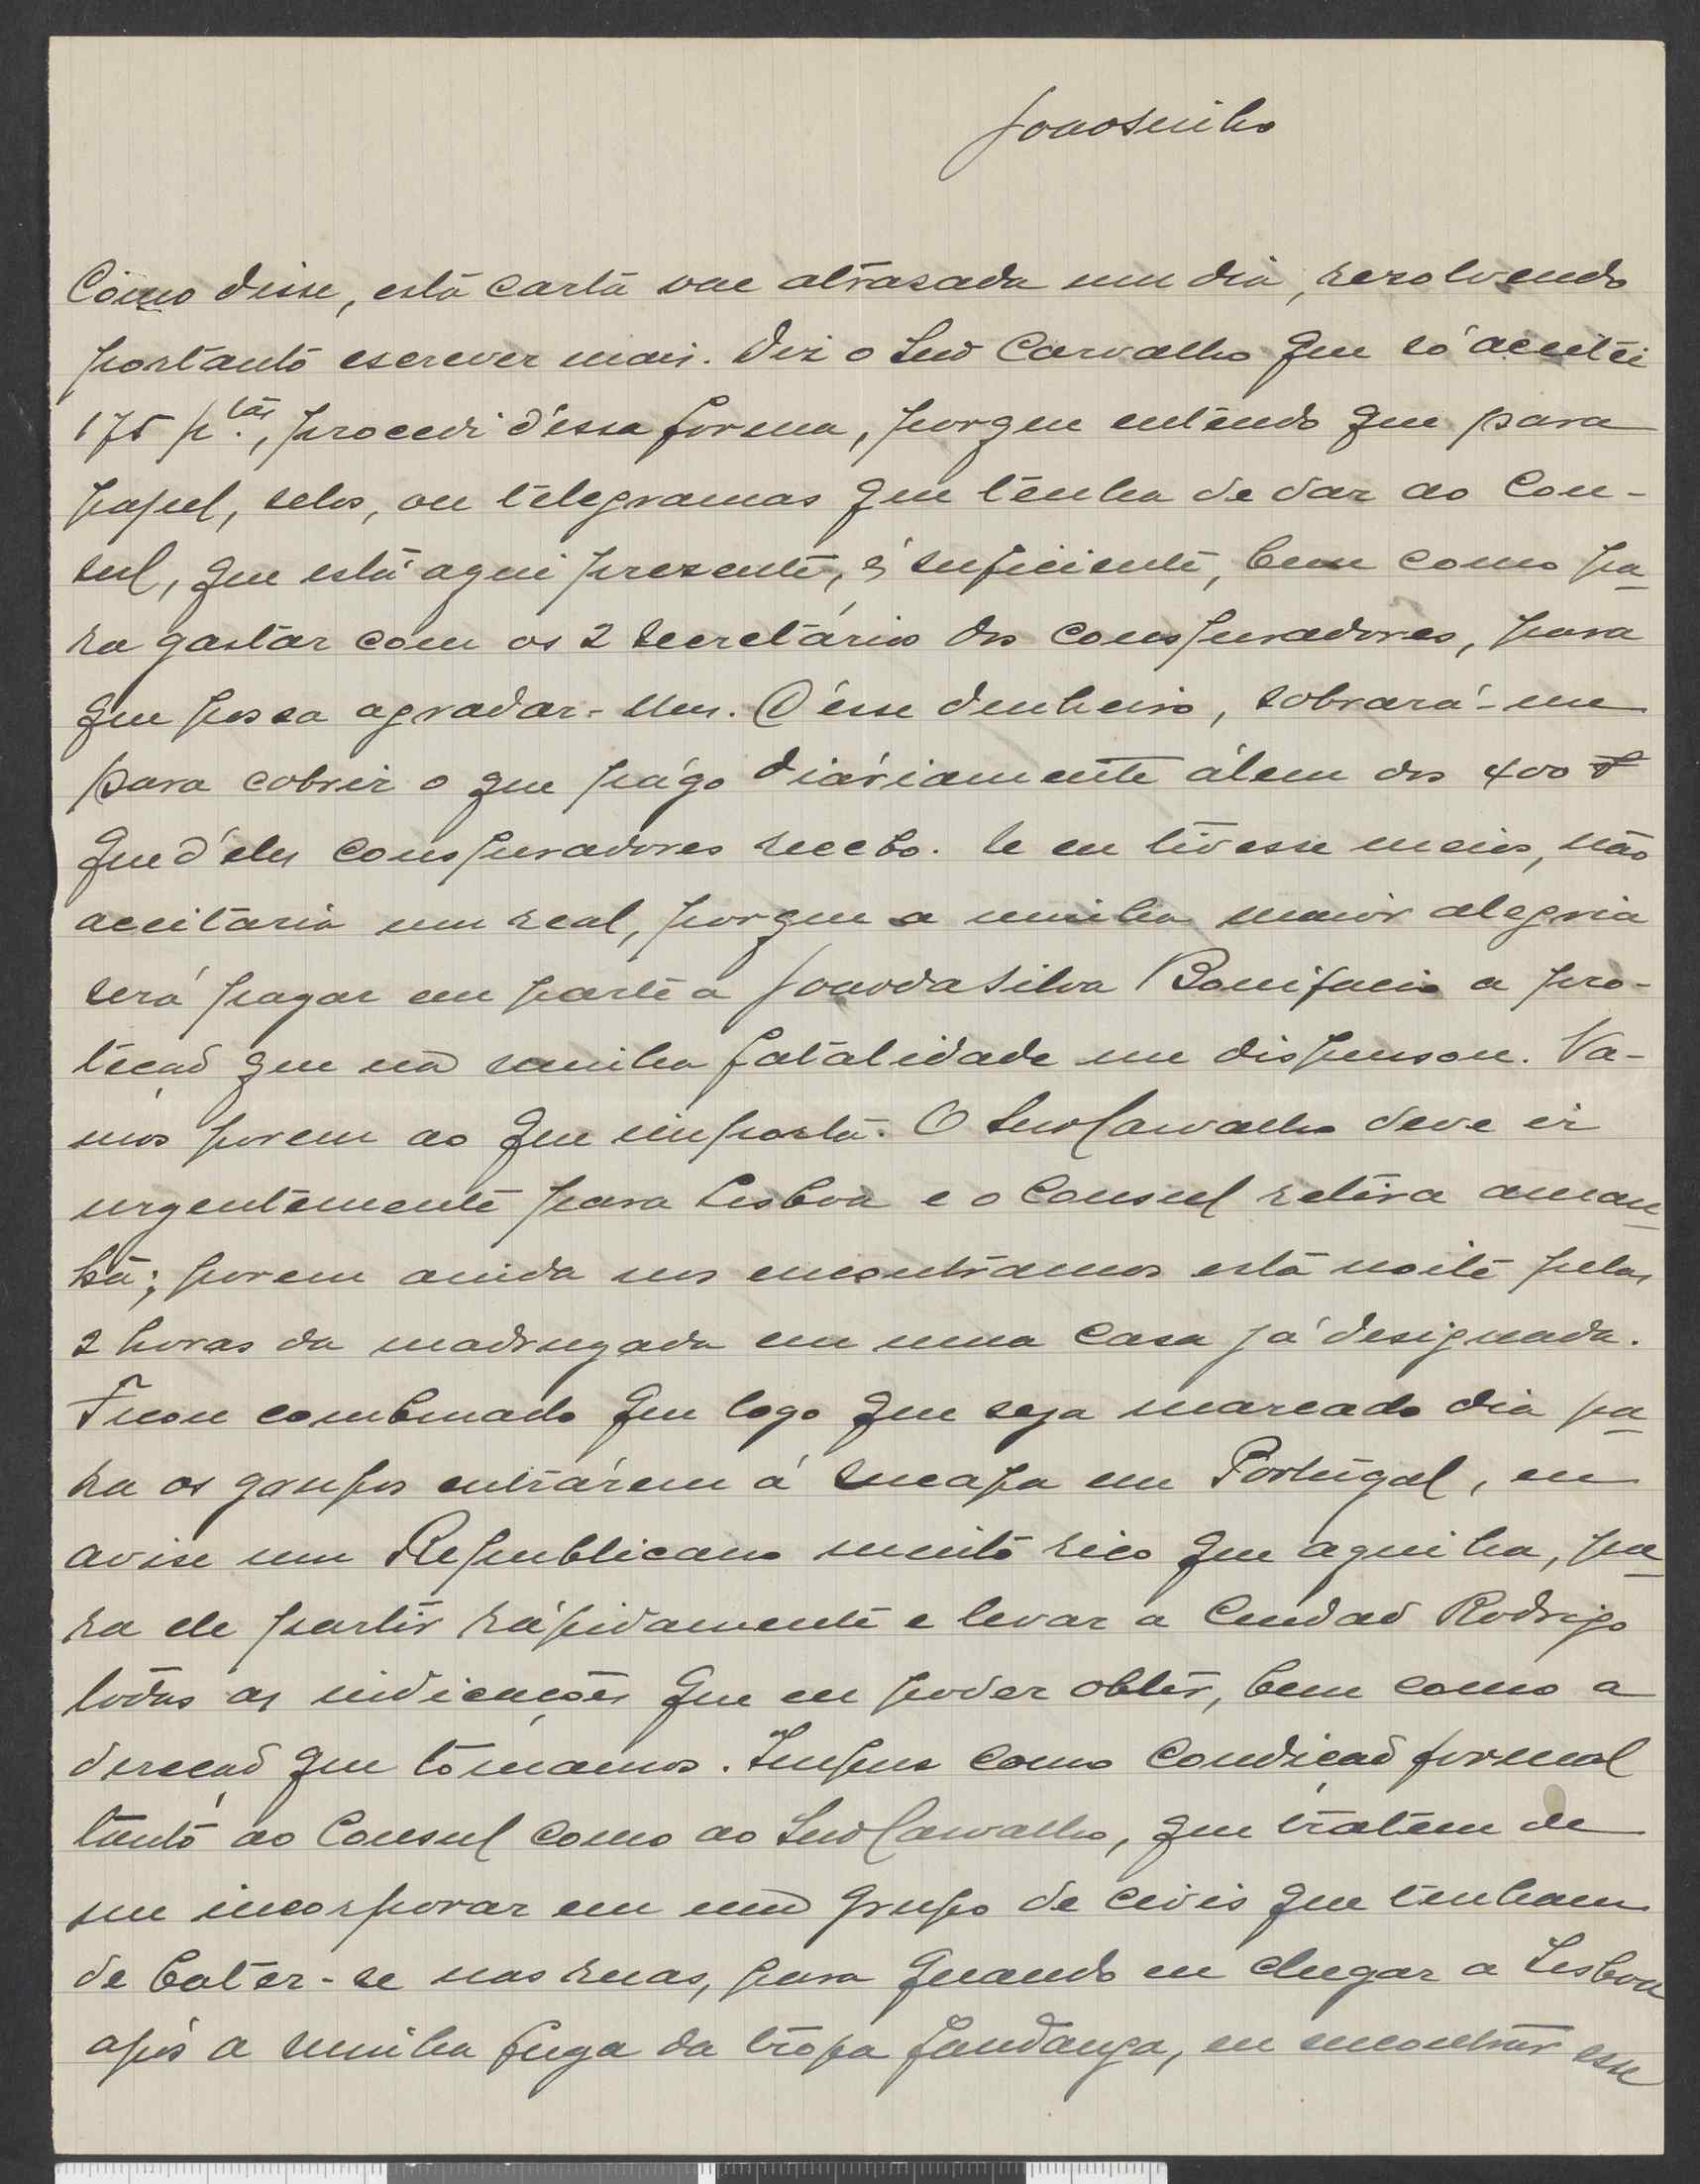 Joaosinho
Como disse, esta carta vae atrasada um dia, resolvendo
portanto escrever mais. Diz o Snr Carvalho que só aceitei
175 p.tas, procedi d'éssa forma, porque entendo que para
papel, selos, ou telegramas que tenha de dar ao Con-
sul, que está aqui prezente, é suficiente, bem como pa-
ra gastar com os 2 secretários dos conspuradores, para
que possa agradar-lhes. D'ésse denheiro, sobrará-me
para cobrir o que págo diáriamente álem dos 400 r
que d'eles conspuradores recebo. Se eu tivesse meios, não
aceitaria um real, porque a minha maior alegria
será pagar em parte a Joao da Silva Bonifacio a pro-
teçaõ que na minha fatalidade me dispensou. Va-
mos porem ao que importa. O Snr Carvalho deve ir
urgentemente para Lisboa e o Consul retira aman-
hã; porem ainda nos encontramos esta noite pelas
2 horas da madrugada em uma casa já designada.
Ficou combinado que logo que seja marcado dia pa-
ra os grupos entrárem á sucapa em Portugal, eu
avise um Republicano muito rico que aqui ha, pa-
ra ele partir rápidamente e levar a Ciudad Rodrigo
todas as indicações que eu poder obter, bem como a
direçaõ que tomamos. Impus como condiçaõ formal
tanto ao Consul como ao Snr Carvalho, que tratem de
me incorporar em um grupo de civis que tenham
de bater-se nas ruas, para quando eu chegar a Lisboa
após a minha fuga da tropa fandanga, eu encontrar esse